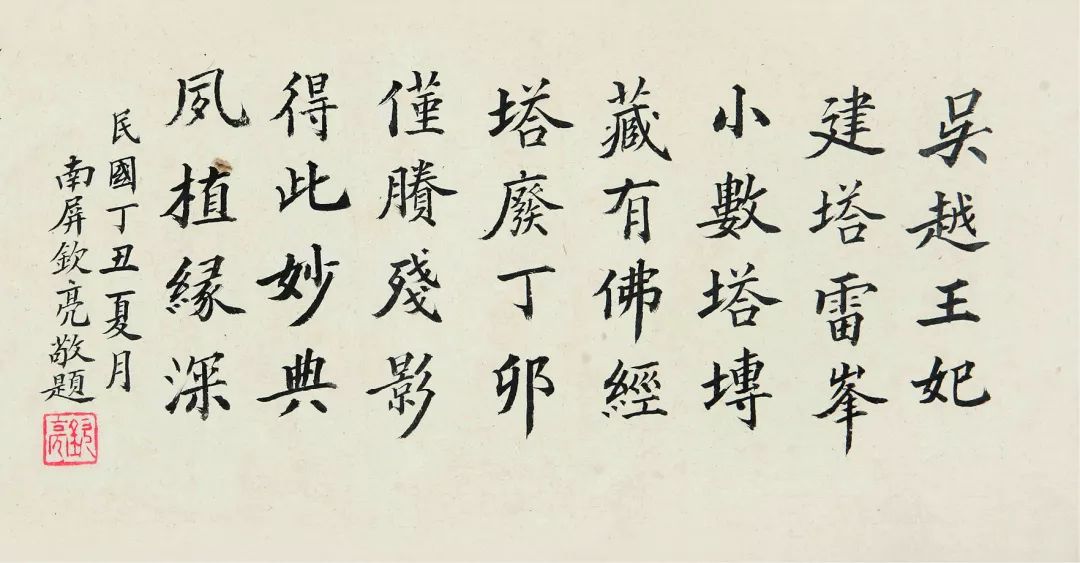 吳越王妃
建塔雷峯
小數塔塼
藏有佛經
塔廢丁卯
僅賸殘影
得此妙典
夙植緣深
民國丁丑夏月
南屏欽亮敬題
欽亮